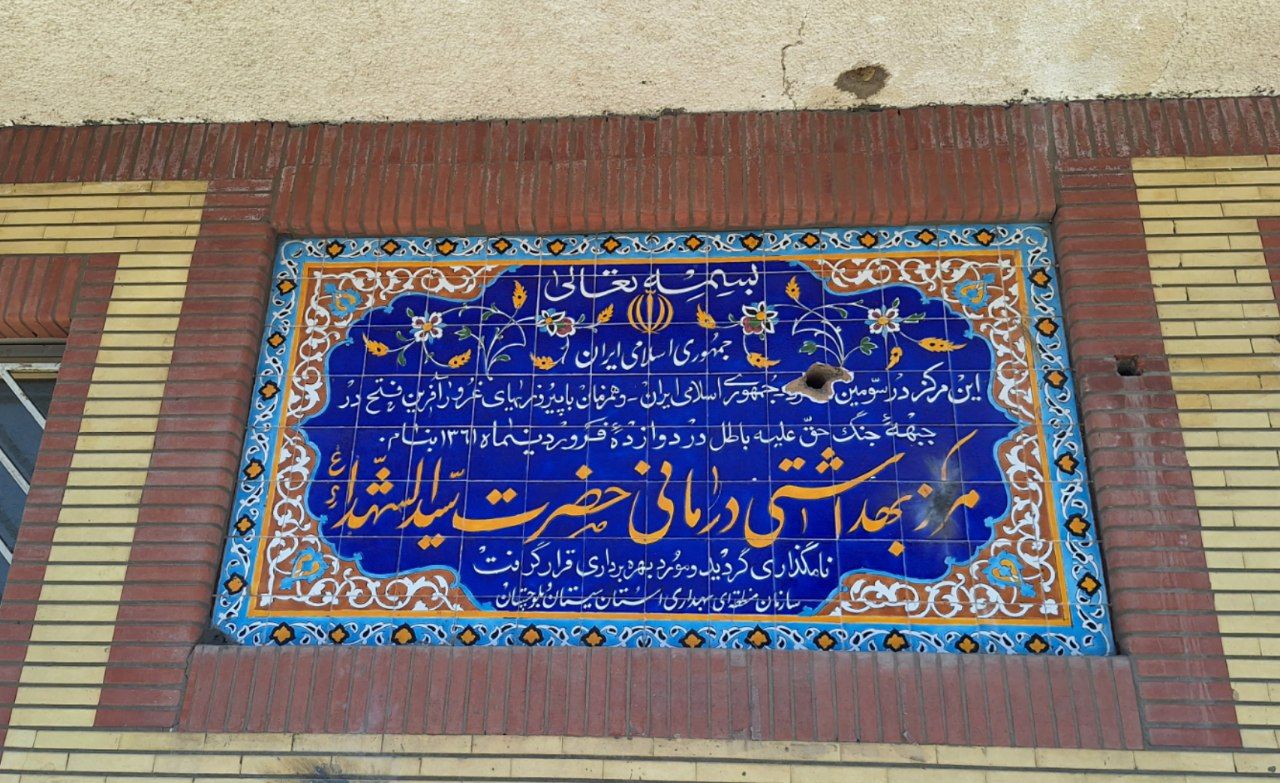 بسمه تعالی
جمهوری اسلامی ایران
این مرکز در سومین جمهوری اسلامی ایران - و همزمان با پیروزیهای غرور آفرین فتح در
جبههٔ جنگ حقّ علیه باطل در دوازدهٔ فروردینماه ۱۳۶۱ بنام:
مرکز بهداشتی درمانی حضرت سیّدالشهّداء ع
نامگذاری گردید و مورد بهره برداری قرار گرفت
سازمان منطقه‌ای بهداری استان سیستان و بلوچستان